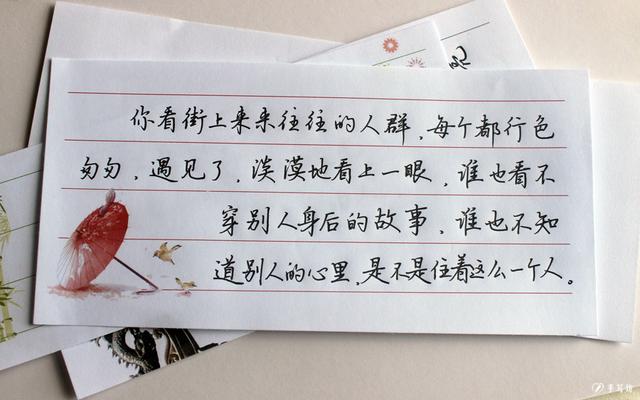 你看街上来来往往的人群，每个都行色
匆匆，遇见了，淡漠地看上一眼，谁也看不
穿别人身后的故事，谁也不知
道别人的心里，是不是住着这么一个人。
手写坊